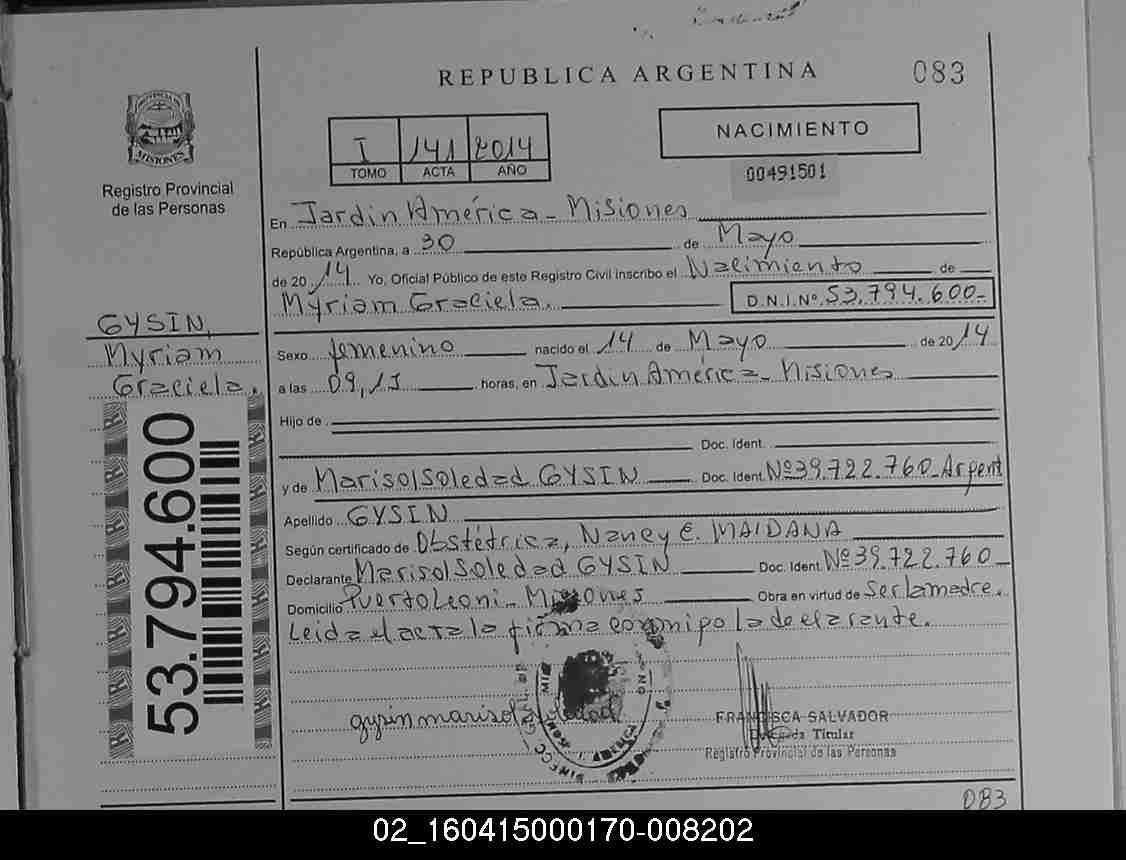 REPUBLICA ARGENTINA 083
PROVINCIA DE MISIONES
Registro Provincial
de las Personas
I 141 2014
TOMO ACTA AÑO
NACIMIENTO
00491501
En Jardin América - Misiones
República Argentina, a 30 de Mayo
de 2014 Yo, Oficial Público de este Registro Civil inscribo el Nacimiento de
Myriam Graciela. D.N.I.Nº 53.794.600-
GYSIN,
Myriam
Graciela.
53.794.600
Sexo femenino nacido el 14 de Mayo de 2014
a las 09,15 horas, en Jardin América - Misiones
Hijo de
Doc. Ident.
y de Marisol Soledad GYSIN Doc. Ident. Nº39.722.760 Argent
Apellido GYSIN
Según certificado de Obstétrica, Nancy E. MAIDANA
Declarante Marisol Soledad GYSIN Doc. Ident. Nº39.722.760
Domicilio Puerto Leoni - Misiones Obra en virtud de Ser la madre.
Leida el acta la firma conmipo la declarante.
gysin marisol soledad
FRANCISCA SALVADOR
Delegada Titular
Registro Provincial de las Personas
083
02_160415000170-008202